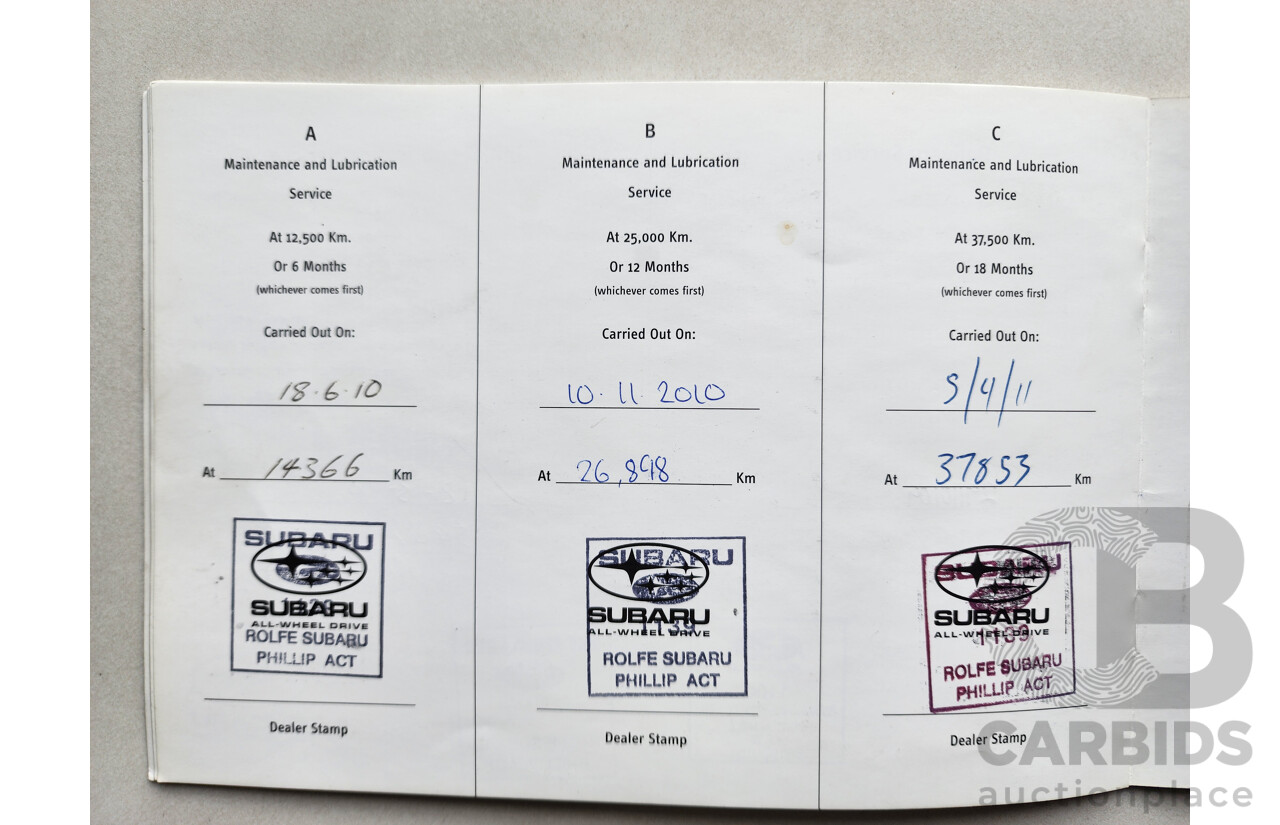 A
Maintenance and Lubrication
Service
At 12,500 Km.
Or 6 Months
(whichever comes first)
Carried Out On:
18.6.10
At 14366 Km
SUBARU
SUBARU
ALL-WHEEL DRIVE
ROLFE SUBARU
PHILLIP ACT
Dealer Stamp
B
Maintenance and Lubrication
Service
At 25,000 Km.
Or 12 Months
(whichever comes first)
Carried Out On:
10.11.2010
At 26,898 Km
SUBARU
SUBARU
ALL-WHEEL DRIVE
ROLFE SUBARU
PHILLIP ACT
Dealer Stamp
C
Maintenance and Lubrication
Service
At 37,500 Km.
Or 18 Months
(whichever comes first)
Carried Out On:
5/4/11
At 37853 Km
SUBARU
SUBARU
ALL-WHEEL DRIVE
1139
ROLFE SUBARU
PHILLIP ACT
Dealer Stamp
B
CARBIDS
auctionplace